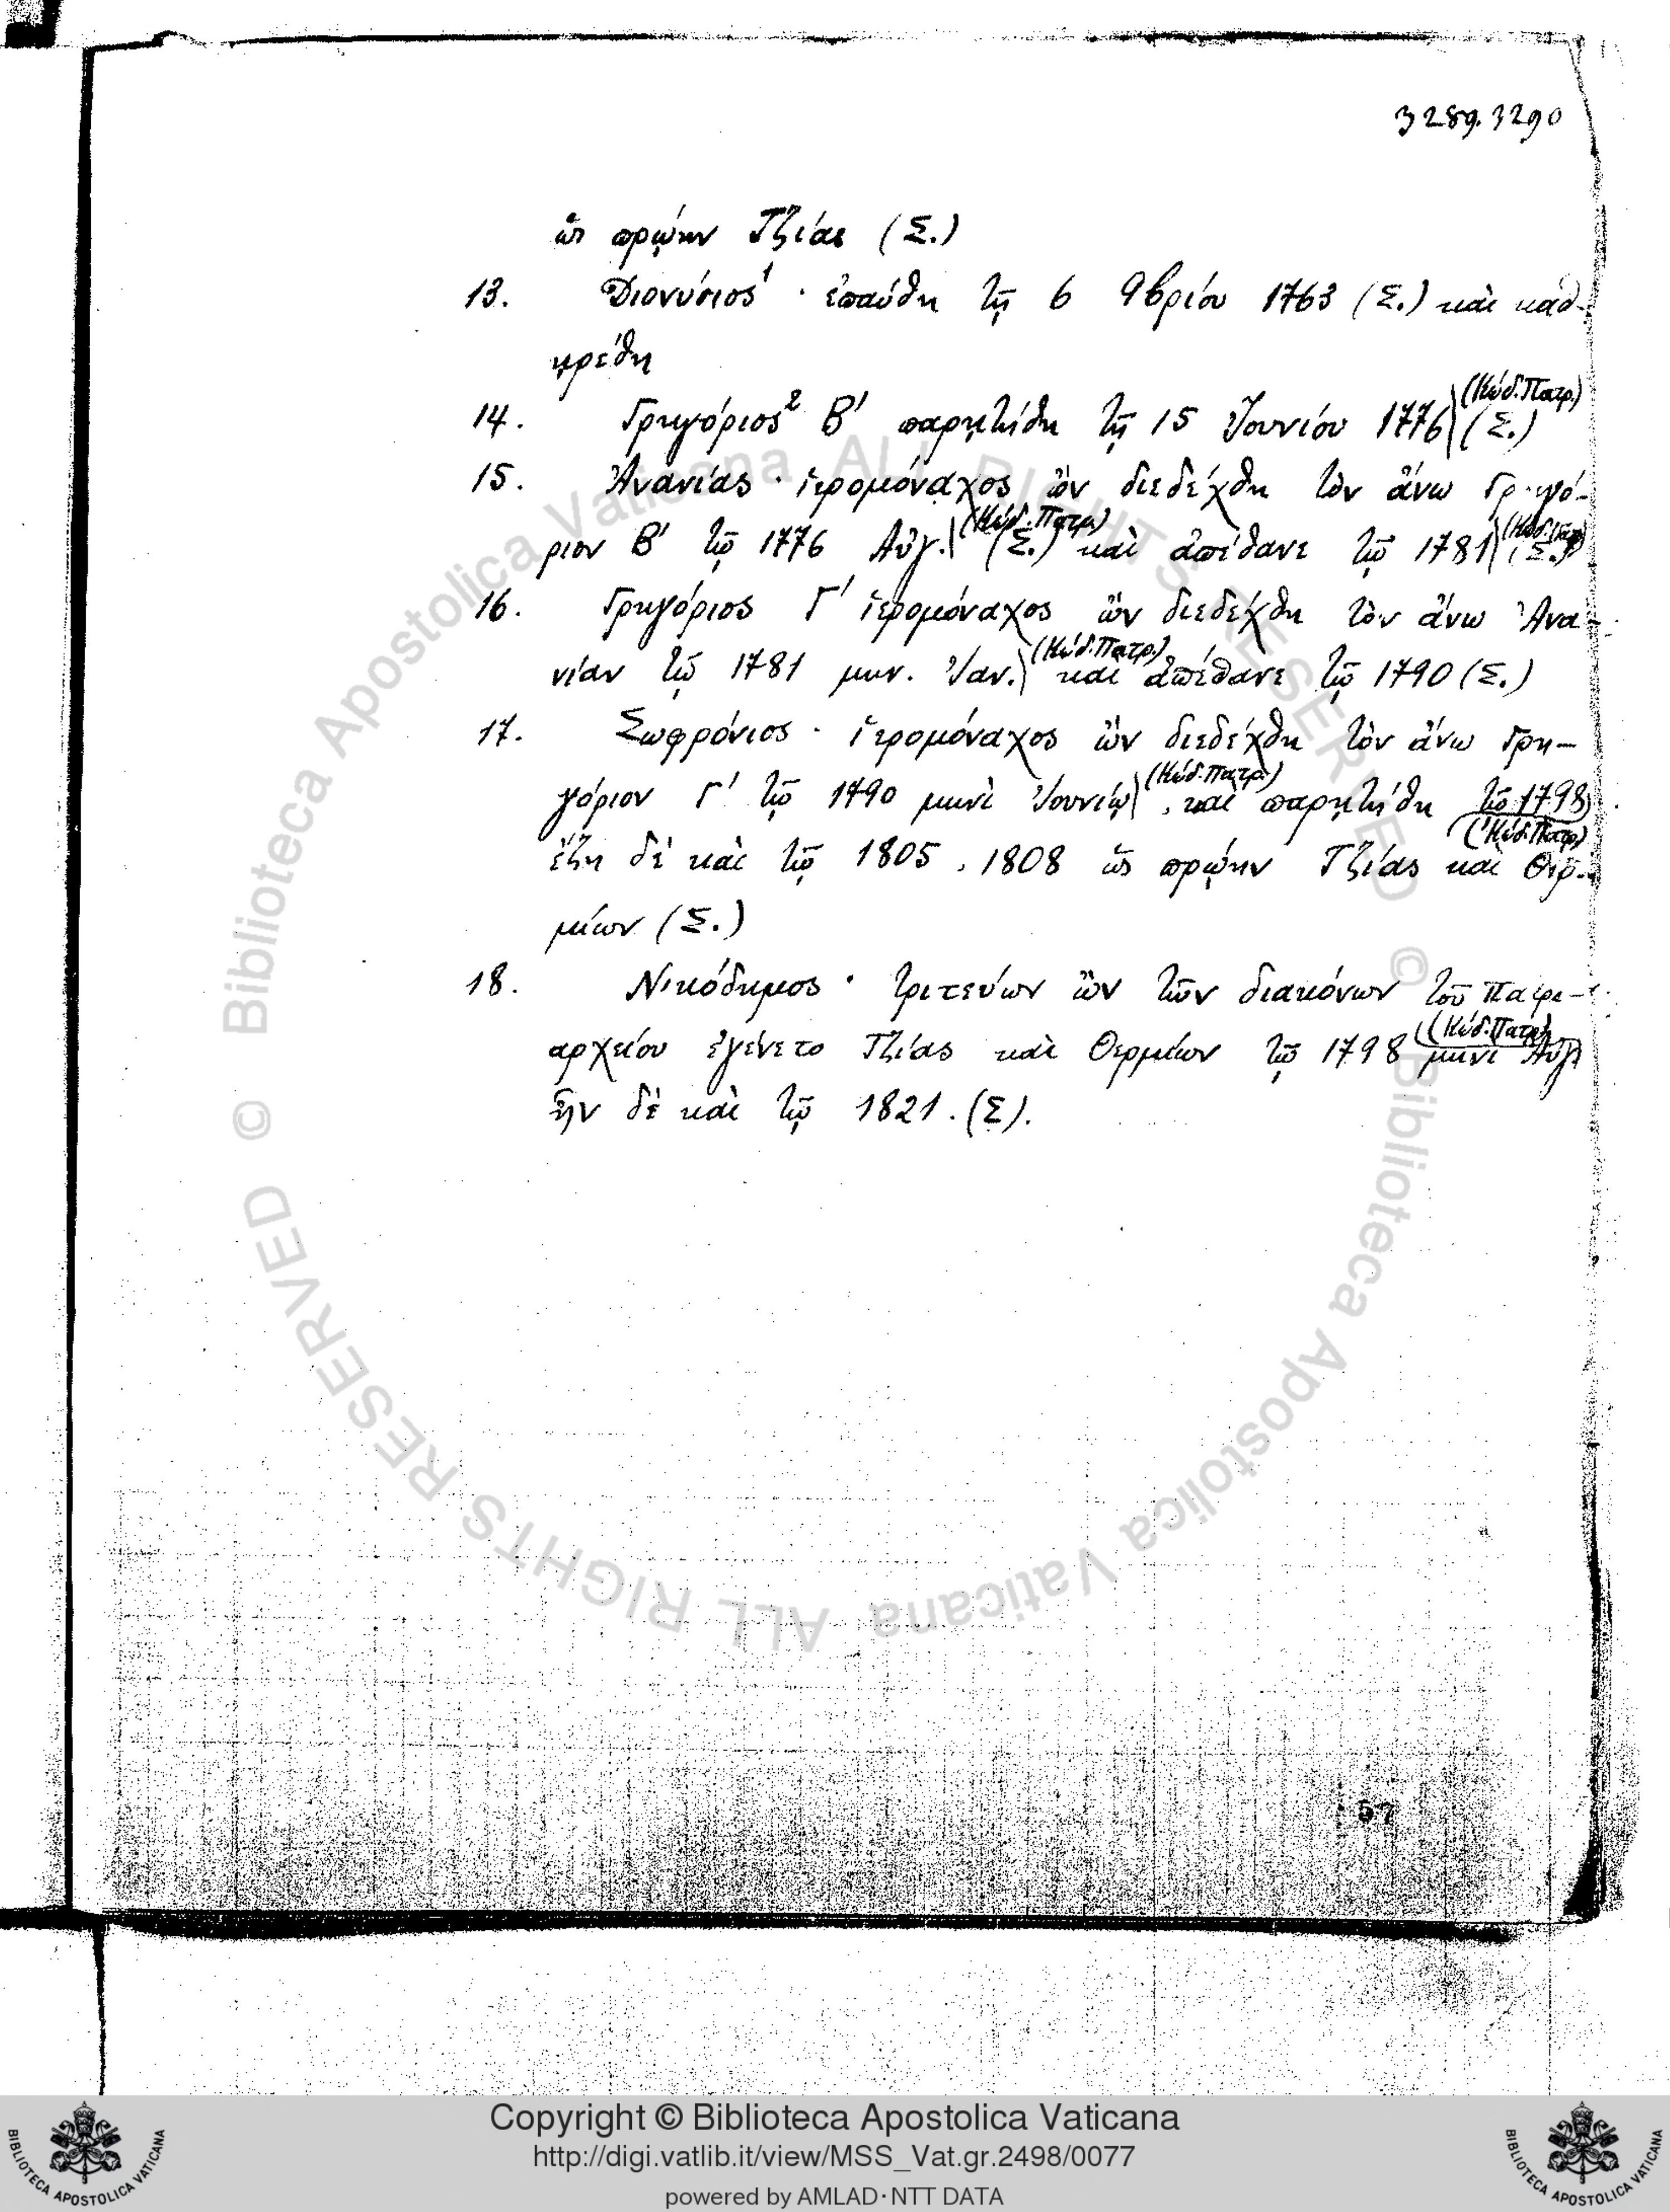 3289. 3290
ὡς πρῴην Τζίας (Σ.)
13. Διονύσιος¹ · ἐπαύθη τῇ 6 9βρίου 1763 (Σ.) καὶ καθ-
ῃρέθη
14. Γρηγόριος² Β' παρῃτήθη τῇ 15 Ἰουνίου 1776 (Κώδ. Πατρ.) (Σ.)
15. Ἀνανίας · ἱερομόναχος ὢν διεδέχθη τὸν ἄνω Γρηγό-
ριον Β' τῷ 1776 Αὐγ. (Κώδ. Πατρ.) (Σ.) καὶ ἀπέθανε τῷ 1781 (Κώδ. Πατρ.) (Σ.)
16. Γρηγόριος Γ' ἱερομόναχος ὢν διεδέχθη τὸν ἄνω Ἀνα-
νίαν τῷ 1781 μην. Ἰαν. (Κώδ. Πατρ.) καὶ ἀπέθανε τῷ 1790 (Σ.)
17. Σωφρόνιος · ἱερομόναχος ὢν διεδέχθη τὸν ἄνω Γρη-
γόριον Γ' τῷ 1790 μηνὶ Ἰουνίῳ (Κώδ. Πατρ.), καὶ παρῃτήθη τῷ 1798 (Κώδ. Πατρ.)
ἔζη δὲ καὶ τῷ 1805, 1808 ὡς πρῴην Τζίας καὶ Θερ-
μίων (Σ.)
18. Νικόδημος · τριτεύων ὢν τῶν διακόνων τοῦ Πατρι-
αρχείου ἐγένετο Τζίας καὶ Θερμίων τῷ 1798 (Κώδ. Πατρ.) μηνὶ Αὐγ.
ἦν δὲ καὶ τῷ 1821. (Σ).
57
© Biblioteca Apostolica Vaticana ALL RIGHTS RESERVED
© Biblioteca Apostolica Vaticana ALL RIGHTS RESERVED
Copyright © Biblioteca Apostolica Vaticana
http://digi.vatlib.it/view/MSS_Vat.gr.2498/0077
powered by AMLAD·NTT DATA
BIBLIOTECA APOSTOLICA VATICANA
BIBLIOTECA APOSTOLICA VATICANA